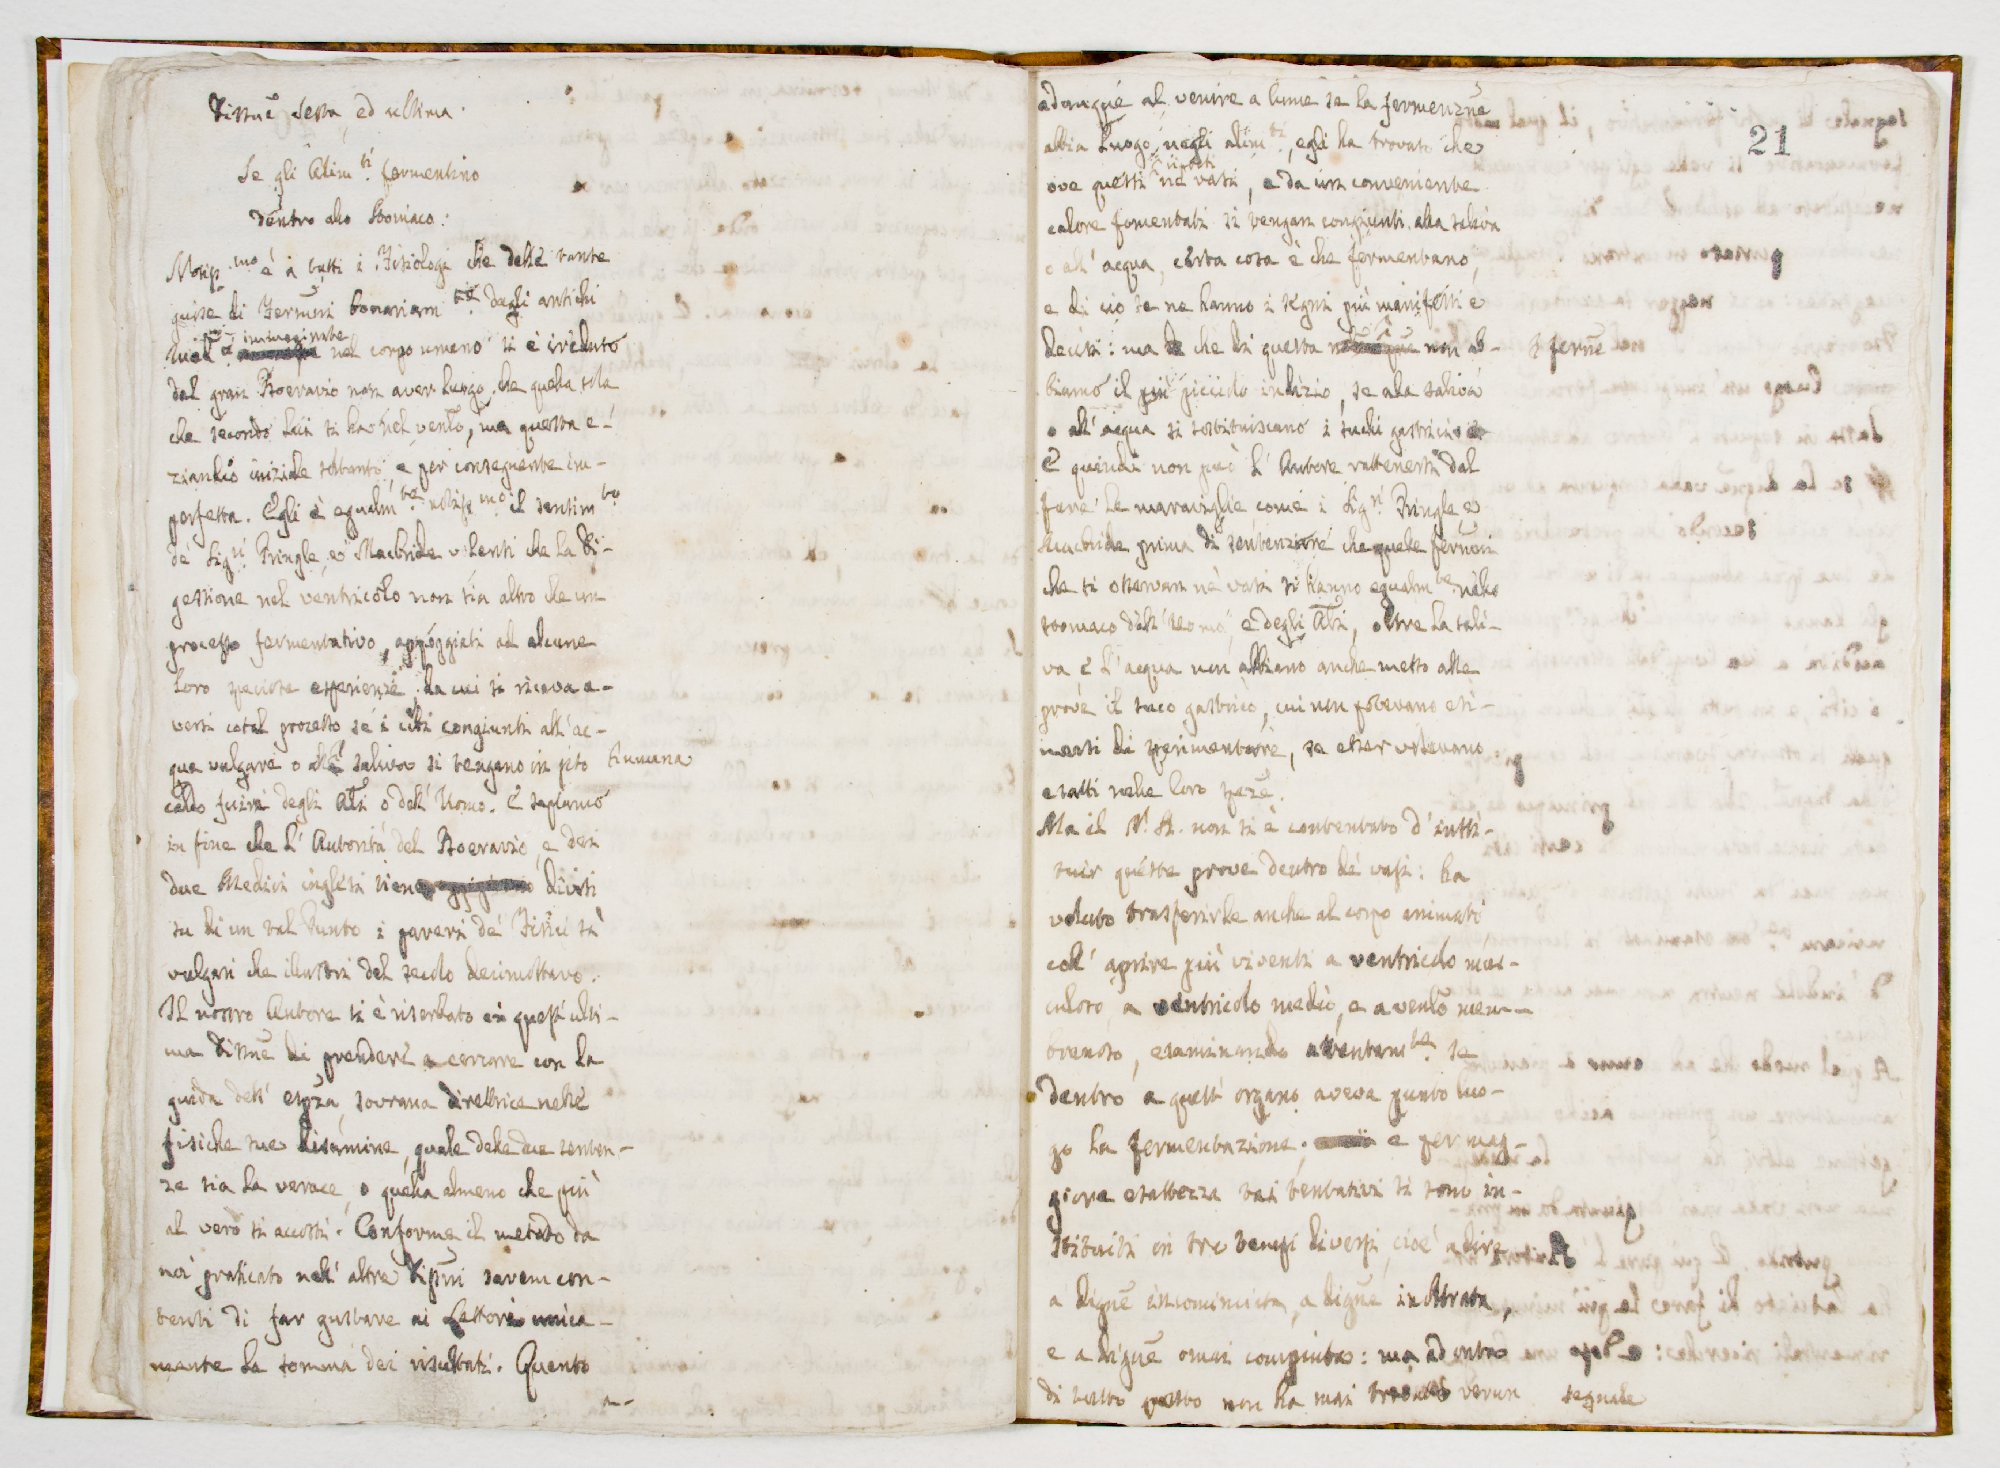 Dissne Sesta, ed ultima.
Se gli Alim.ti fermentino
dentro allo Stomaco.
Notiss.mo è a tutti i Fisiologi che delle tante
guise di Fermni bonariam.te dagli antichi
immaginate nel corpo umano si è creduto
dal gran Boeravio non aver luogo che quella sola
che secondo lui si ha nel ventlo, ma questa e-
ziandio iniziale soltanto, e per conseguente im-
perfetta. Egli è egualm.te notiss.mo il sentim.to
de' Sig.ri Pringle, e Macbride volenti che la Di-
gestione nel ventricolo non sia altro che un
processo fermentativo, appoggiati ad alcune
loro speciose esperienze, da cui si ricava a-
versi cotal processo se i cibi congiunti all'ac-
qua vulgare o alla saliva si tengano in sito umana
caldo fuori degli Ali o dell'Uomo. E sappiamo
in fine che l'Autorità del Boeravio, e dei
due Medici inglesi tiene divisi
su di un tal Punto i pareri de' Fisici sì
vulgari che illustri del secolo decimottavo.
Il nostro Autore si è riserbato in quest'ulti-
ma Dissne di prendere a cercare con la
guida dell'espza, sovrana direttrice nelle
fisiche sue disamine, quale delle due senten-
ze sia la verace, o quella almeno che più
al vero si accosti. Conforme il metodo da
noi praticato nell'altre Disprni sarem con-
tenti di far gustare ai Lettori unica-
mente la somma dei risultati. Quanto
a-
21
adunque al venire a lume se la fermenzne
abbia luogo negli alim.ti, egli ha trovato che
ove questi rinchiusi ne' vasi, e da un conveniente
calore fomentati si vengan congiunti alla saliva
o all'acqua, certa cosa è che fermentano,
e di ciò se ne hanno i segni più manifesti e
decisi: ma che di questa non ab- fermne
biamo il più picciolo indizio, se alla saliva
o all'acqua si sostituiscano i suchi gastrici
E quindi non può l'Autore rattenersi dal
fare le maraviglie come i Sig.ri Pringle e
Macbride prima di sentenziare che quelle fermni
che si osservan ne' vasi si hanno egualm.te nello
stomaco dell'Uomo, e degli Ali, oltre la sali-
va e l'acqua non abbiano anche messo alle
prove il suco gastrico, cui non potevano esi-
mersi di sperimentare, se esser volevano
esatti nelle loro spze.
Ma il N.A. non si è contentato d'insti-
tuir queste prove dentro de' vasi: ha
voluto trasferirle anche al corpo animato
coll'aprire più viventi a ventricolo mus-
coloso, a ventricolo medio, e a ventlo mem-
branoso, esaminando attentam.te se
dentro a quest'organo aveva punto luo-
go la fermentazione; e per mag-
giore esattezza tai tentativi si sono in-
stituiti in tre tempi diversi, cioè a dire
a digne incominciata, a digne inoltrata,
e a digne omai compiuta: ma ad onta
di tutto questo non ha mai trovato verun segnale